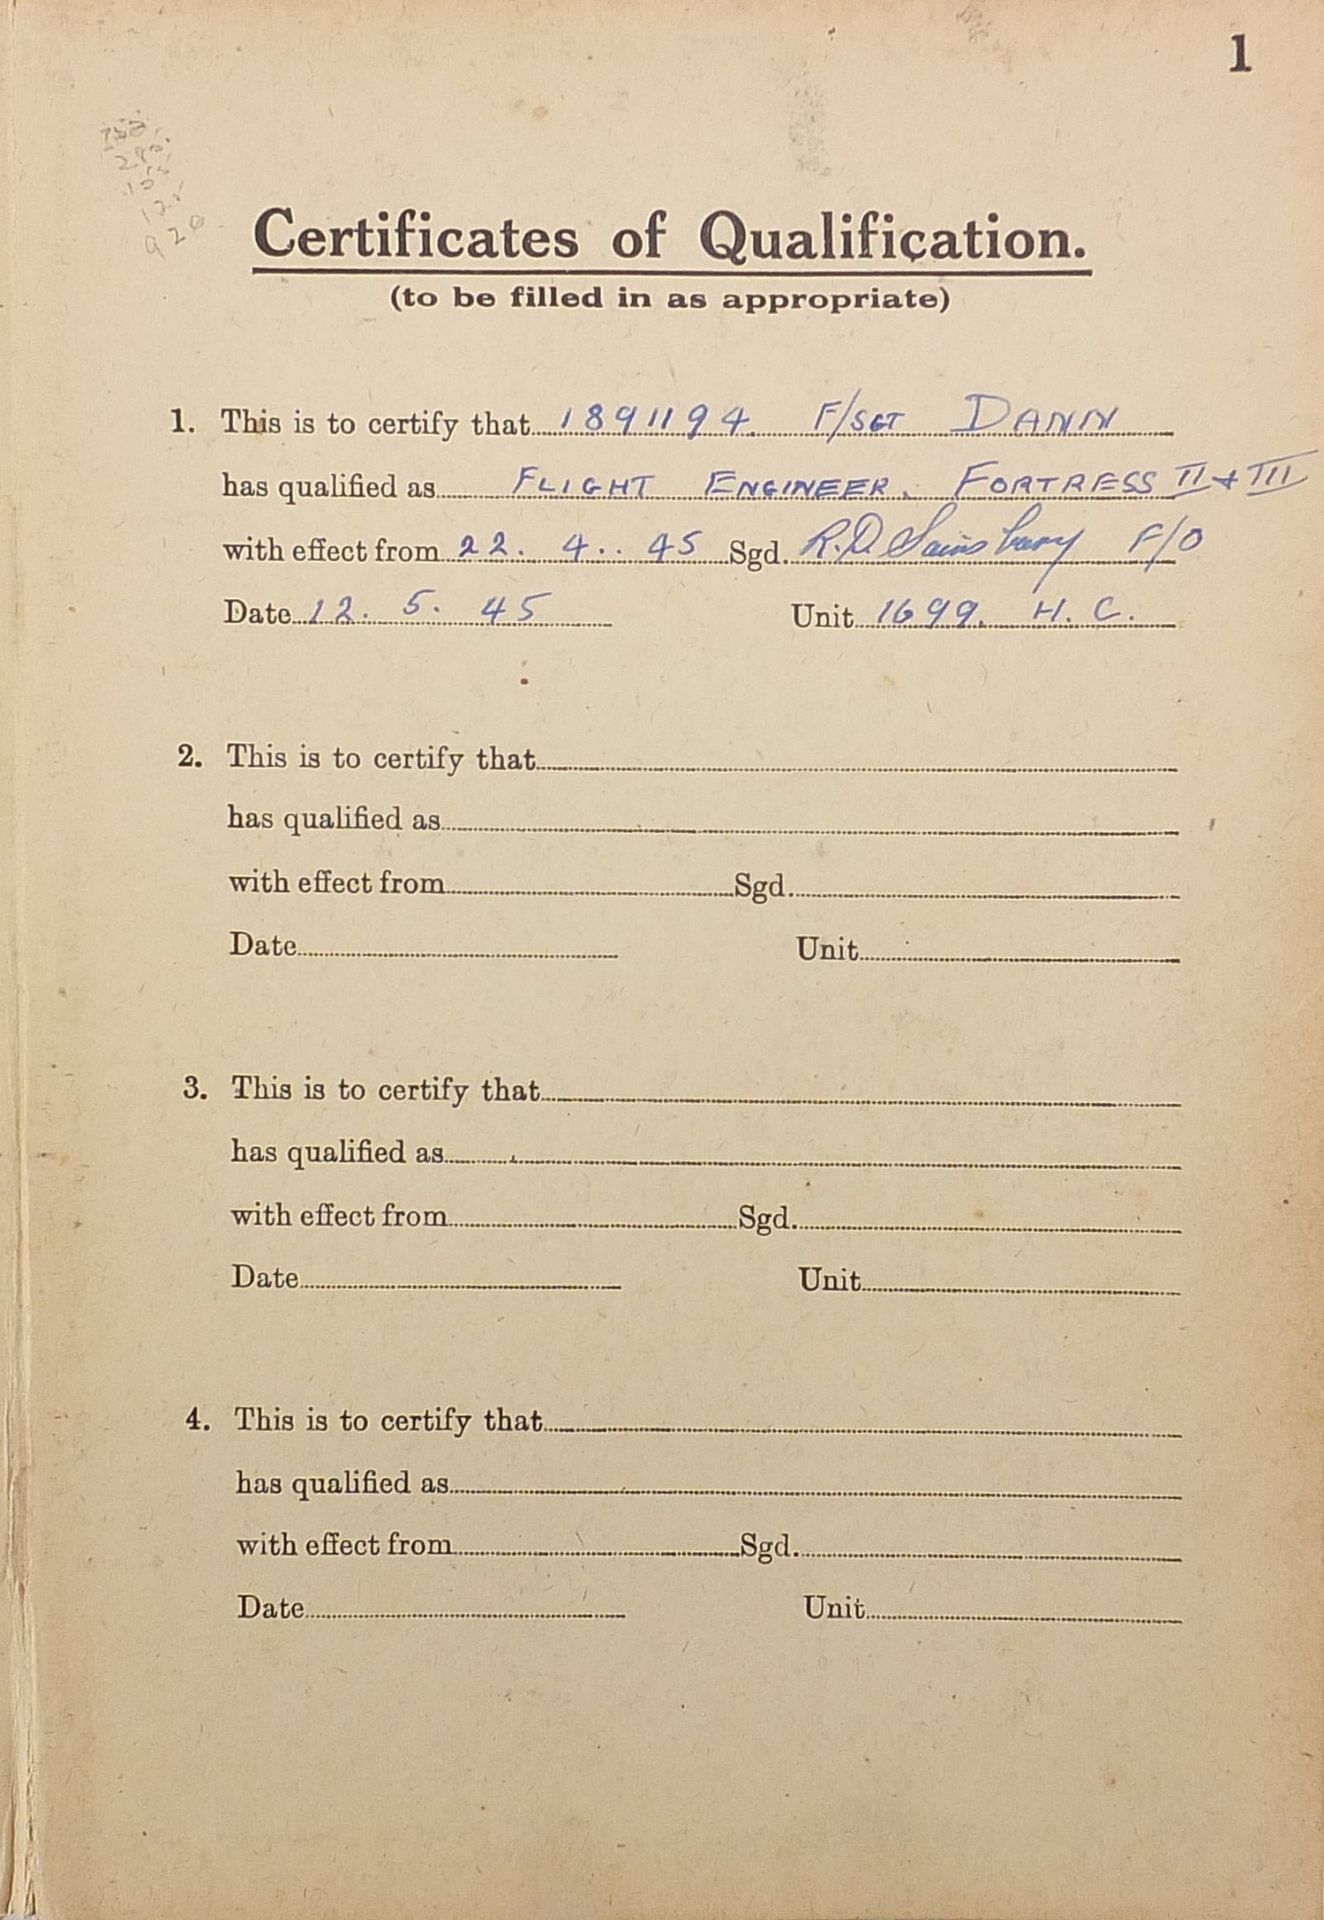 1
920
Certificates of Qualification.
(to be filled in as appropriate)
1. This is to certify that 1891194 F/SGT DANN
has qualified as FLIGHT ENGINEER. FORTRESS II + III
with effect from 22. 4. 45 Sgd. R.D. Sainsbury F/O
Date 12. 5. 45 Unit 1699. H. C.
2. This is to certify that
has qualified as
with effect from Sgd.
Date Unit
3. This is to certify that
has qualified as
with effect from Sgd.
Date Unit
4. This is to certify that
has qualified as
with effect from Sgd.
Date Unit